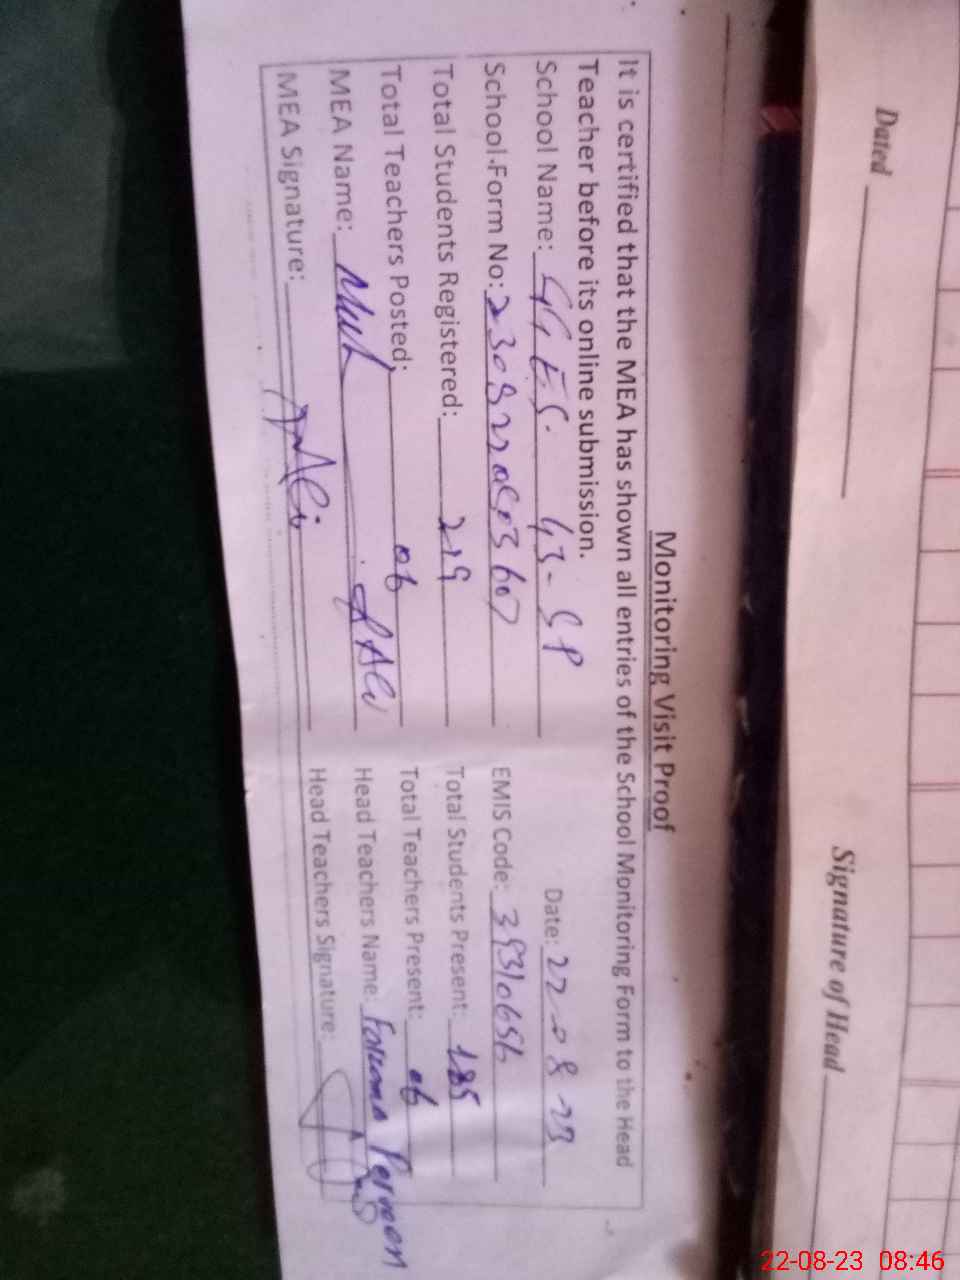 Dated
Signature of Head
Monitoring Visit Proof
It is certified that the MEA has shown all entries of the School Monitoring Form to the Head
Teacher before its online submission.
School Name: GGES. 43-SP Date: 22-08-23
School Form No: EMIS Code: 39310656
Total Students Registered: 219 Total Students Present: 185
Total Teachers Posted: 06 Total Teachers Present: 06
MEA Name: Head Teachers Name: Parveen
MEA Signature: Head Teachers Signature:
22-08-23 08:46